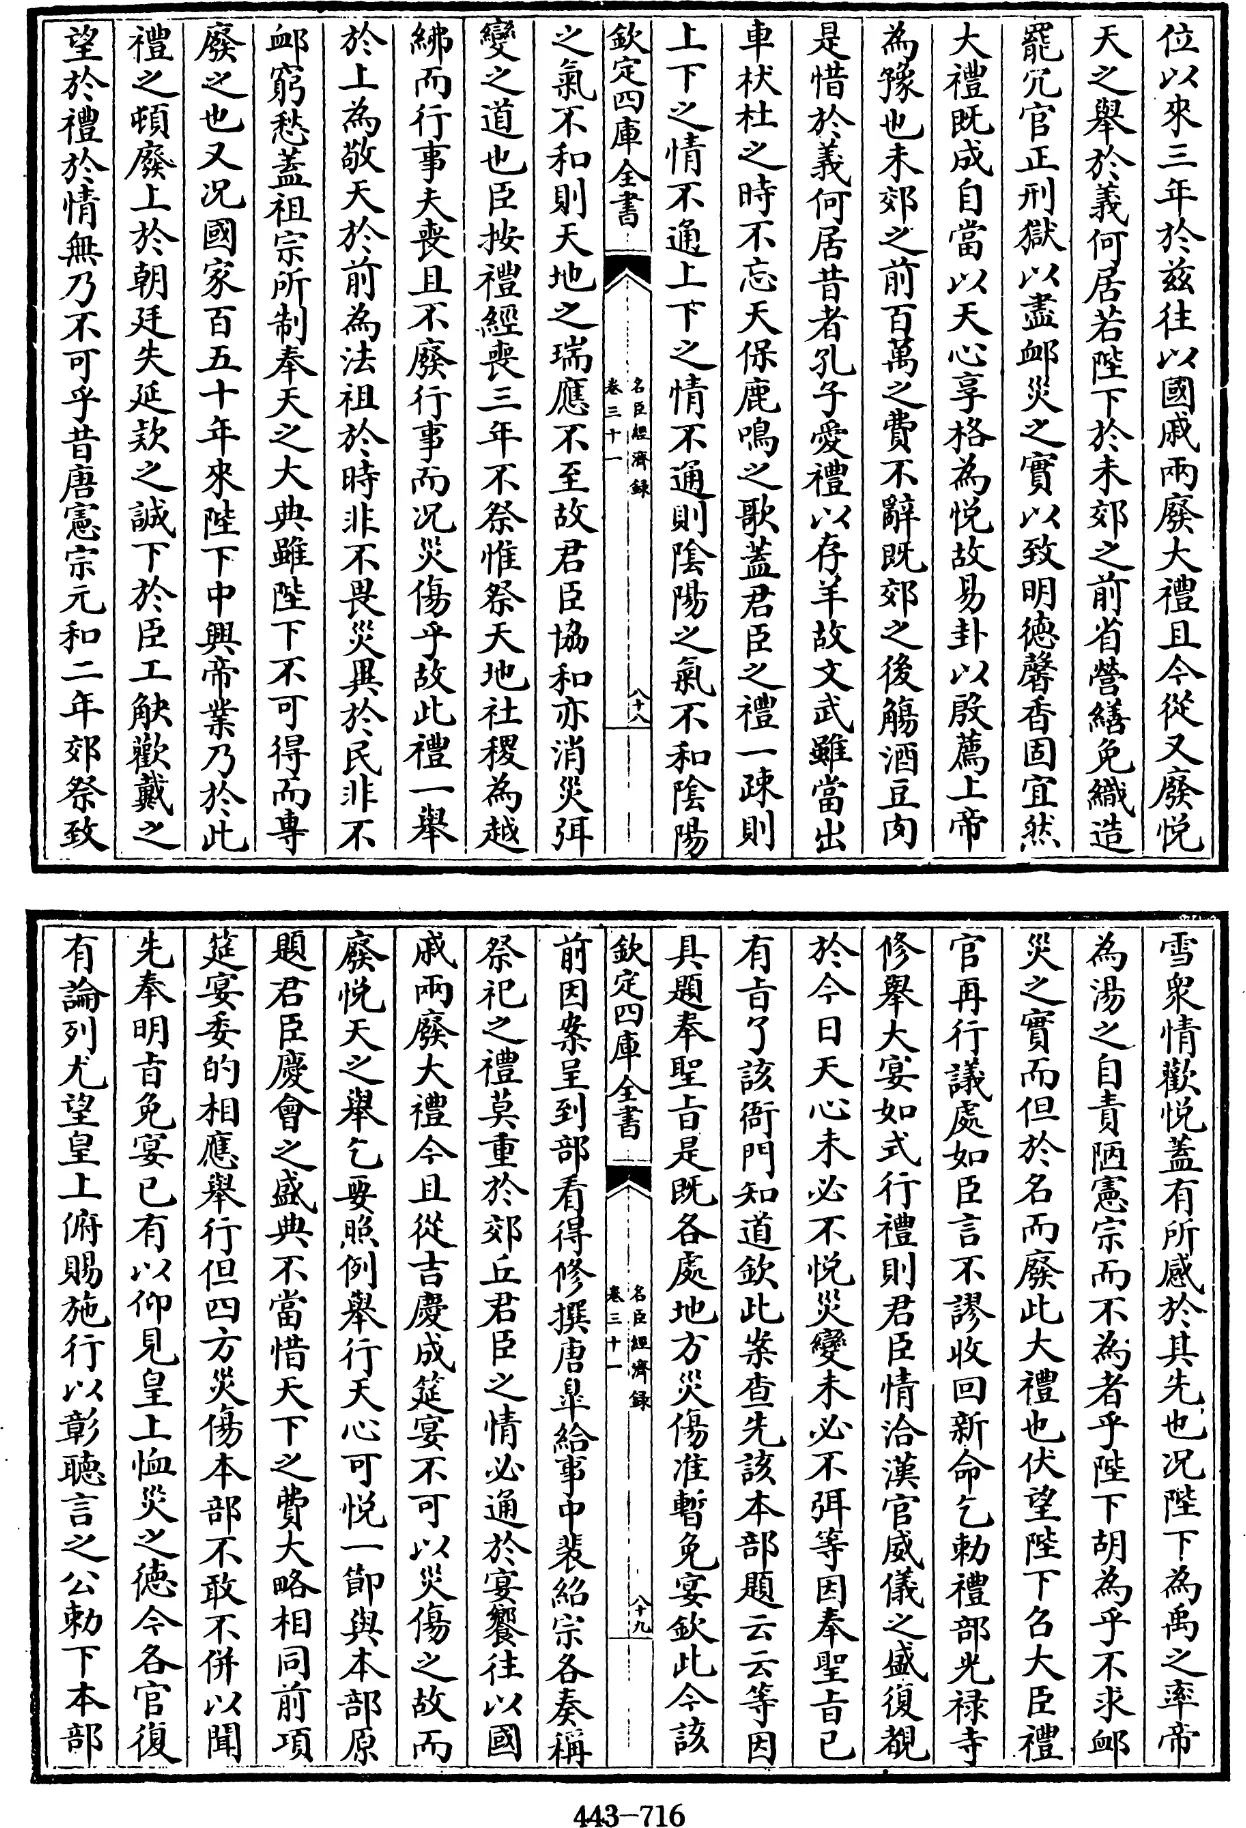 位以來三年於兹往以國戚兩廢大禮且今從又廢悦
天之舉於義何居若陛下於未郊之前省營繕免織造
罷冗官正刑獄以盡䘏災之實以致明德馨香固宜然
大禮既成自當以天心享格為悦故易卦以殷薦上帝
為豫也未郊之前百萬之費不辭既郊之後觴酒豆肉
是惜於義何居昔者孔子愛禮以存羊故文武雖當出
車杕杜之時不忘天保鹿鳴之歌蓋君臣之禮一疎則
上下之情不通上下之情不通則陰陽之氣不和陰陽
欽定四庫全書
名臣經濟録
卷三十一
八十八
之氣不和則天地之瑞應不至故君臣協和亦消災弭
變之道也臣按禮經喪三年不祭惟祭天地社稷為越
紼而行事夫喪且不廢行事而况災傷乎故此禮一舉
於上為敬天於前為法祖於時非不畏災異於民非不
䘏窮愁蓋祖宗所制奉天之大典雖陛下不可得而專
廢之也又况國家百五十年來陛下中興帝業乃於此
禮之頓廢上於朝廷失延欵之誠下於臣工觖歡戴之
望於禮於情無乃不可乎昔唐憲宗元和二年郊祭致
雪衆情歡悦蓋有所感於其先也况陛下為禹之率帝
為湯之自責陋憲宗而不為者乎陛下胡為乎不求䘏
災之實而但於名而廢此大禮也伏望陛下召大臣禮
官再行議處如臣言不謬收回新命乞勅禮部光禄寺
修舉大宴如式行禮則君臣情洽漢官威儀之盛復覩
於今日天心未必不悦災變未必不弭等因奉聖旨已
有旨了該衙門知道欽此案查先該本部題云云等因
具題奉聖旨是既各處地方災傷准暫免宴欽此今該
欽定四庫全書
名臣經濟録
卷三十一
八十九
前因案呈到部看得修撰唐臯給事中裴紹宗各奏稱
祭祀之禮莫重於郊丘君臣之情必通於宴饗往以國
戚兩廢大禮今且從吉慶成筵宴不可以災傷之故而
廢悦天之舉乞要照例舉行天心可悦一節與本部原
題君臣慶會之盛典不當惜天下之費大略相同前項
筵宴委的相應舉行但四方災傷本部不敢不併以聞
先奉明旨免宴已有以仰見皇上恤災之德今各官復
有論列尤望皇上俯賜施行以彰聽言之公勅下本部
443-716